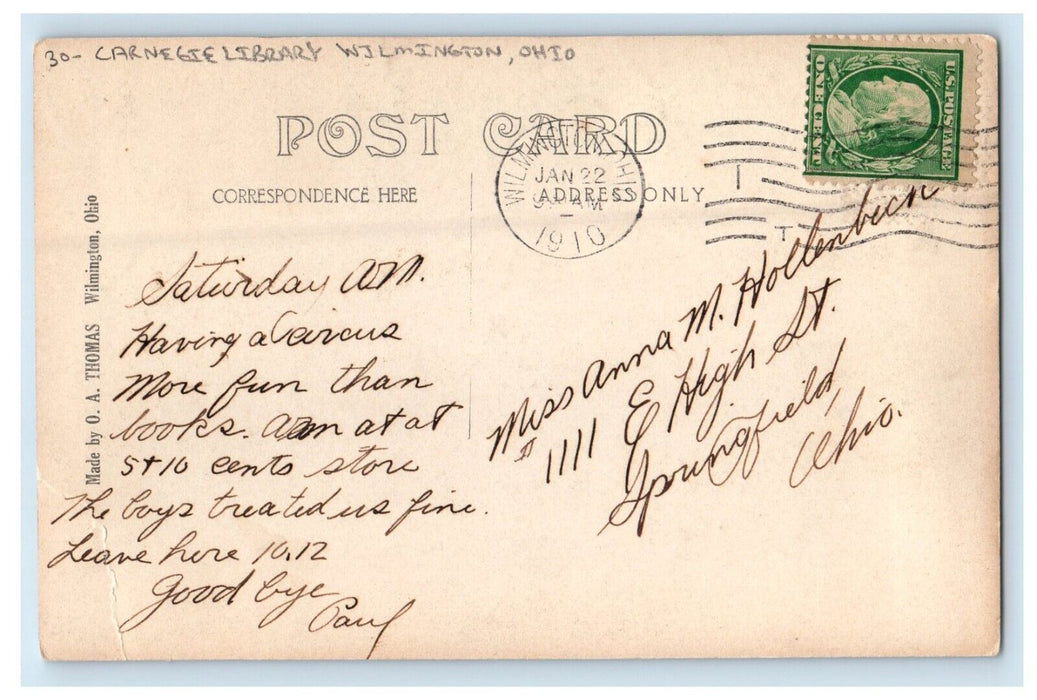 30- CARNEGIE LIBRARY WILMINGTON, OHIO
POST CARD
CORRESPONDENCE HERE
ADDRESS ONLY
WILMINGTON, OHIO
JAN 22
AM
1910
U.S. POSTAGE
ONE CENT
Made by O. A. THOMAS Wilmington, Ohio
Saturday AM.
Having a Circus
More fun than
books. Am at at
5+10 cents store
The boys treated us fine.
Leave here 10.12
Good bye
Paul
Miss Anna M. Hollenbeck
1111 E High St.
Springfield,
Ohio.